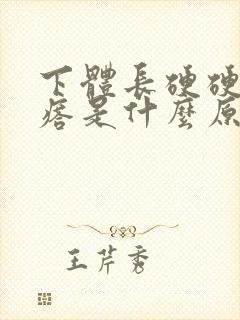 下體長硬硬
痞是什麼原
王芹秀